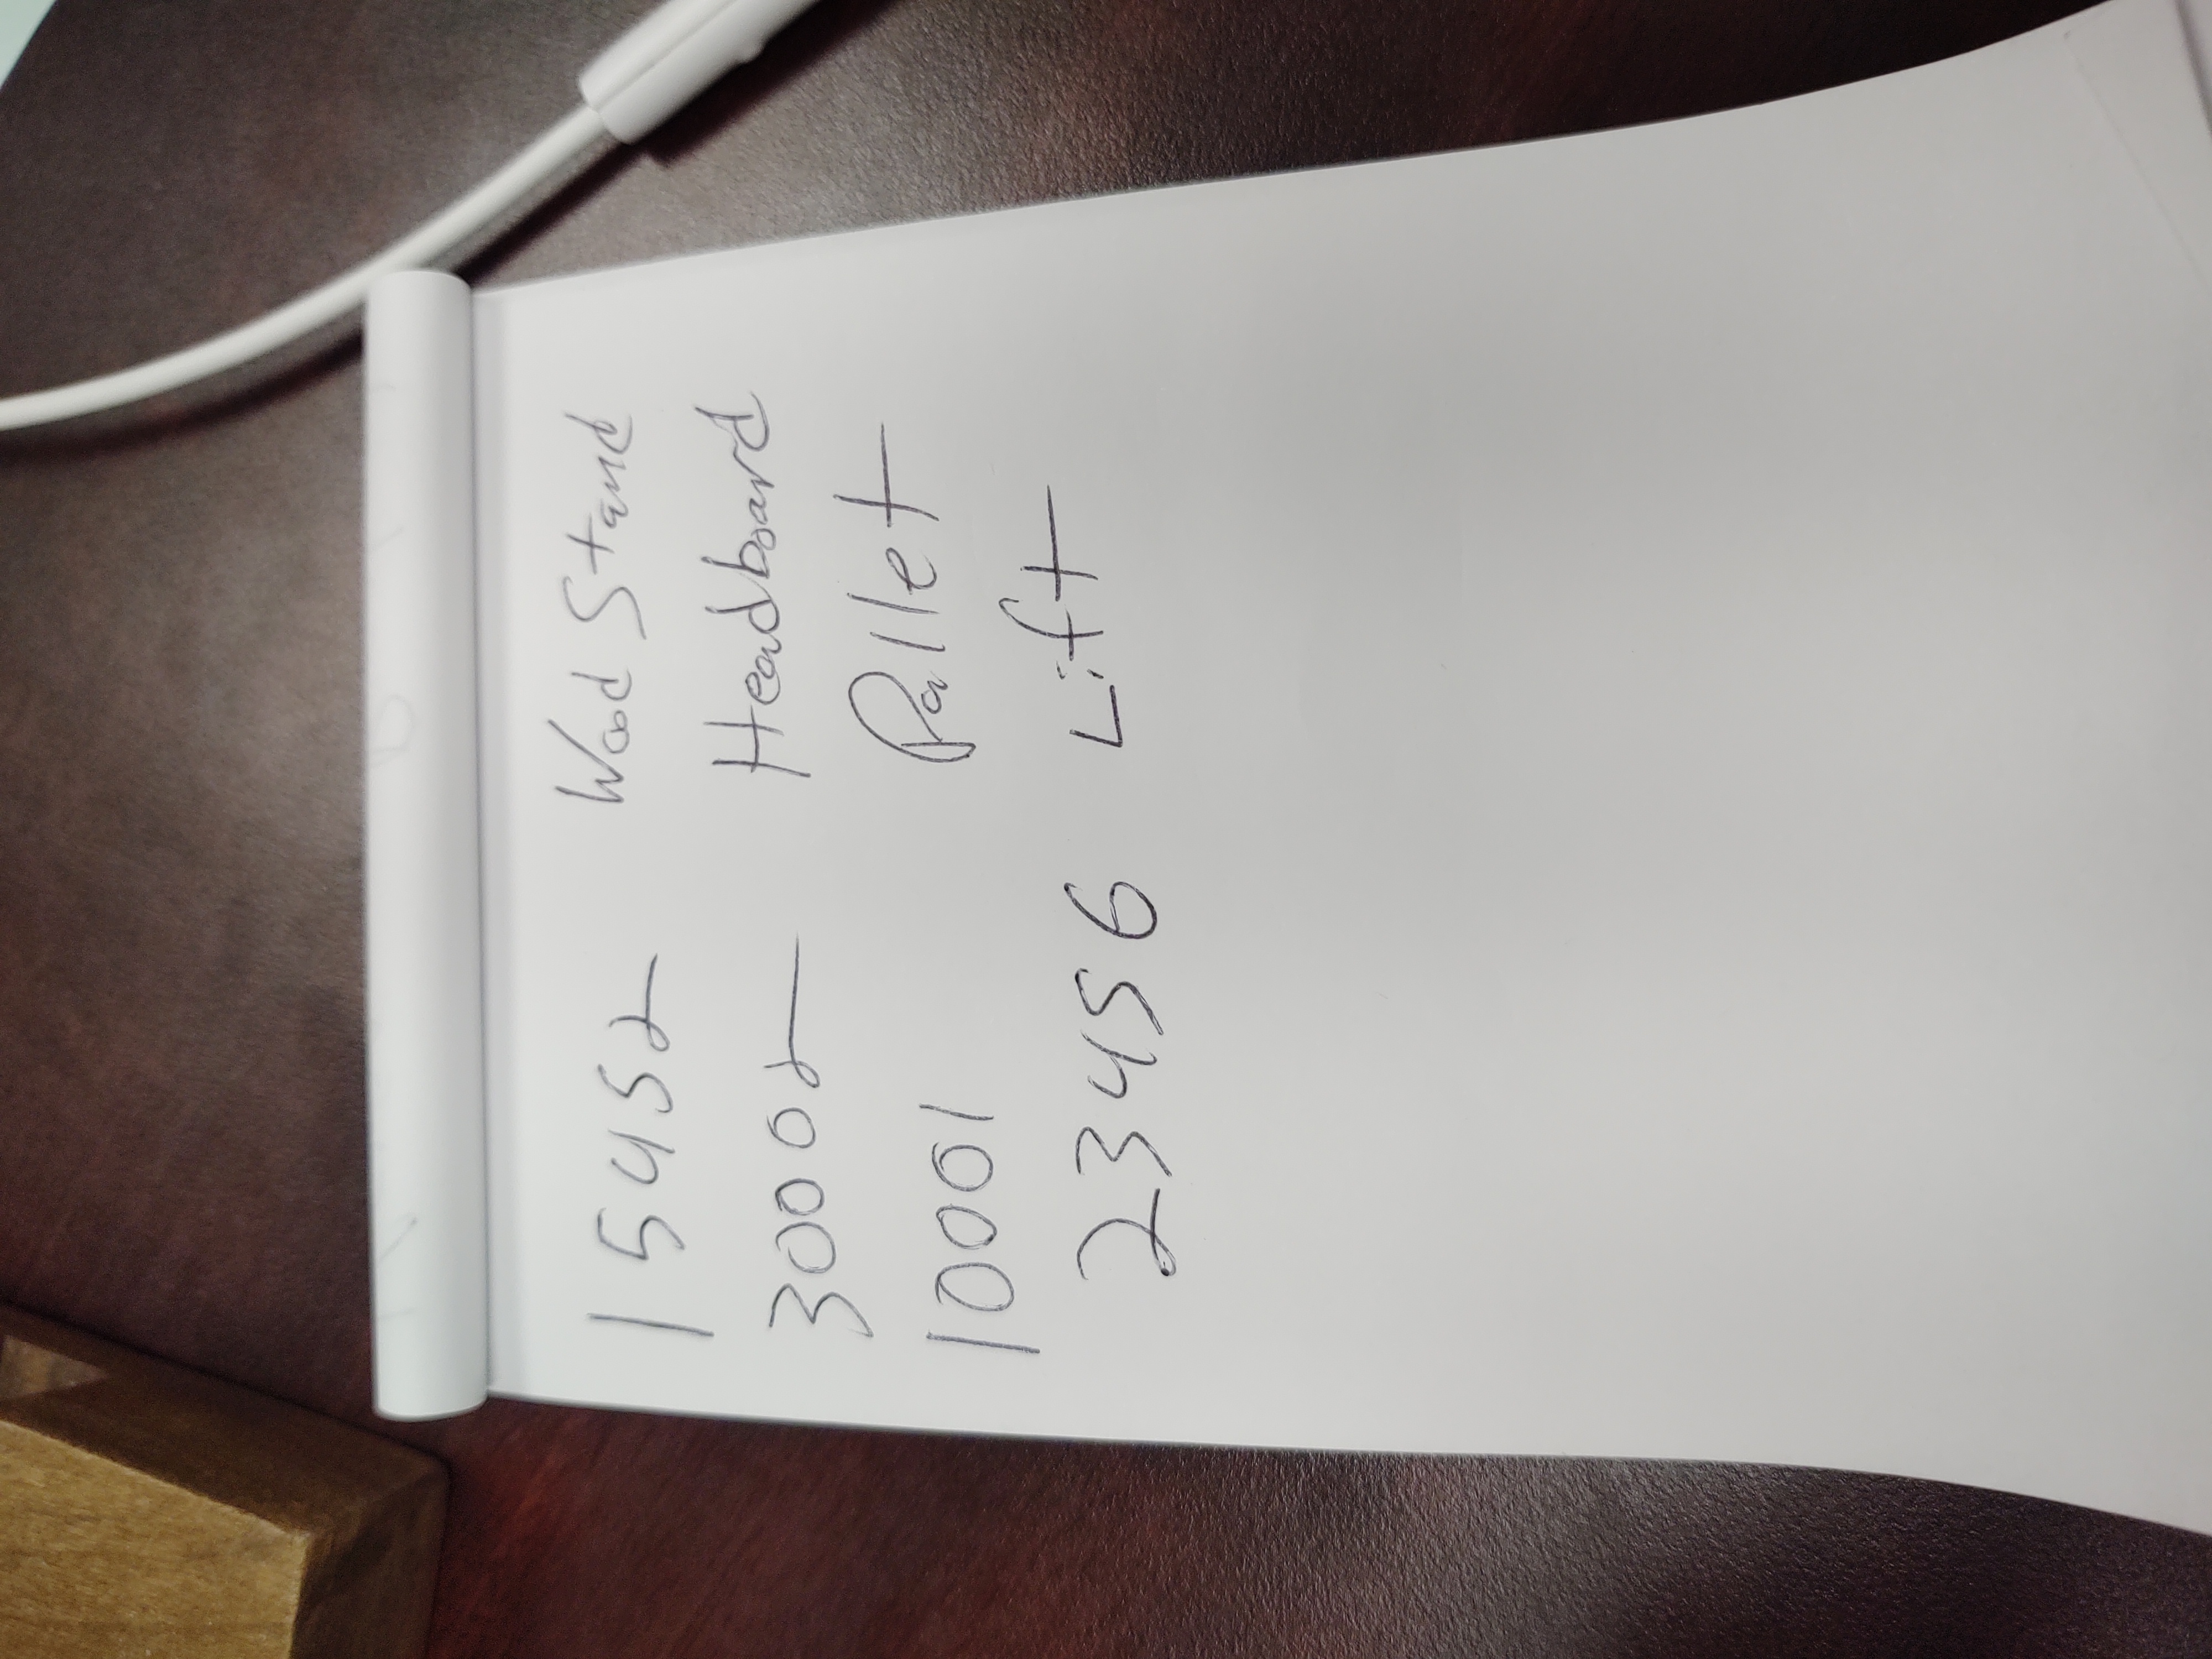 15452 Wood Stand
30002 Headboard
10001 Pallet
23456 Lift